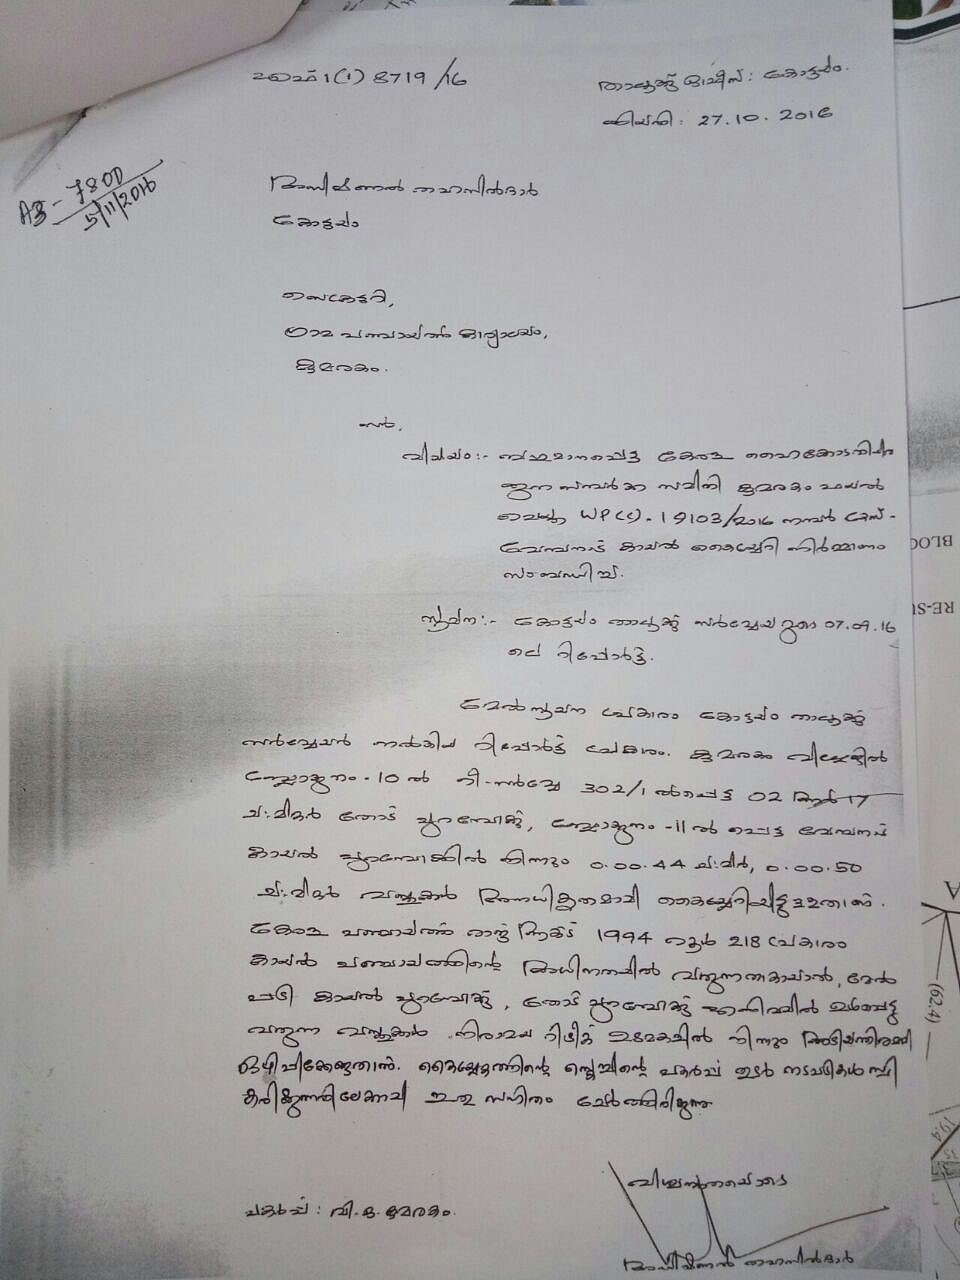 എഫ് 1(1) 8719/16
താലൂക്ക് ഓഫീസ് : കോട്ടയം.
തീയതി : 27.10.2016
A3 - 7800
5/11/2016
അഡീഷണൽ തഹസിൽദാർ
കോട്ടയം
സെക്രട്ടറി,
ഗ്രാമ പഞ്ചായത്ത് കാര്യാലയം,
കുമരകം.
സർ,
വിഷയം :- ബഹുമാനപ്പെട്ട കേരള ഹൈകോടതിയിൽ
ജന സമ്പർക്ക സമിതി കുമരകം ഫയൽ
ചെയ്ത WP(C)- 19103/2016 നമ്പർ കേസ് -
വേമ്പനാട് കായൽ കൈയ്യേറി നിർമ്മാണം
സംബന്ധിച്ച്.
സൂചന :- കോട്ടയം താലൂക്ക് സർവ്വേയറുടെ 07.09.16
ലെ റിപ്പോർട്ട്.
മേൽസൂചന പ്രകാരം കോട്ടയം താലൂക്ക്
സർവ്വേയർ നൽകിയ റിപ്പോർട്ട് പ്രകാരം കുമരകം വില്ലേജിൽ
ബ്ലോക്ക് നം - 10 ൽ റീ-സർവ്വേ 302/1 ൽപ്പെട്ട 02 ആർ 17
ച:മീറ്റർ തോട് പുറമ്പോക്കും, ബ്ലോക്ക് നം - 11 ൽ പെട്ട വേമ്പനാട്
കായൽ പുറമ്പോക്കിൽ നിന്നും 0.00.44 ച:മീറ്റർ, 0.00.50
ച:മീറ്റർ വസ്തുക്കൾ അനധികൃതമായി കൈയ്യേറിയിട്ടുള്ളതാണ്.
കേരള പഞ്ചായത്ത് രാജ് ആക്ട് 1994 റൂൾ 218 പ്രകാരം
കായൽ പഞ്ചായത്തിന്റെ അധീനതയിൽ വരുന്നതാകയാൽ, മേൽ
പടി കായൽ പുറമ്പോക്ക്, തോട് പുറമ്പോക്ക് എന്നിവയിൽ ഉൾപ്പെട്ടു
വരുന്ന വസ്തുക്കൾ നിരാമയ റിട്രീറ്റ് ഉടമകളിൽ നിന്നും അടിയന്തിരമായി
ഒഴിപ്പിക്കേണ്ടതാണ്. കൈയ്യേറ്റത്തിന്റെ സ്കെച്ചിന്റെ പകർപ്പ് തുടർ നടപടികൾ സ്വീ
കരിക്കുന്നതിലേക്കായി ഇതു സഹിതം ചേർത്തിരിക്കുന്നു
വിശ്വസ്തതയോടെ
പകർപ്പ് : വി.ഒ. കുമരകം.
അഡീഷണൽ തഹസിൽദാർ
BLOC
RE-SU
A
(62.4)
19.4